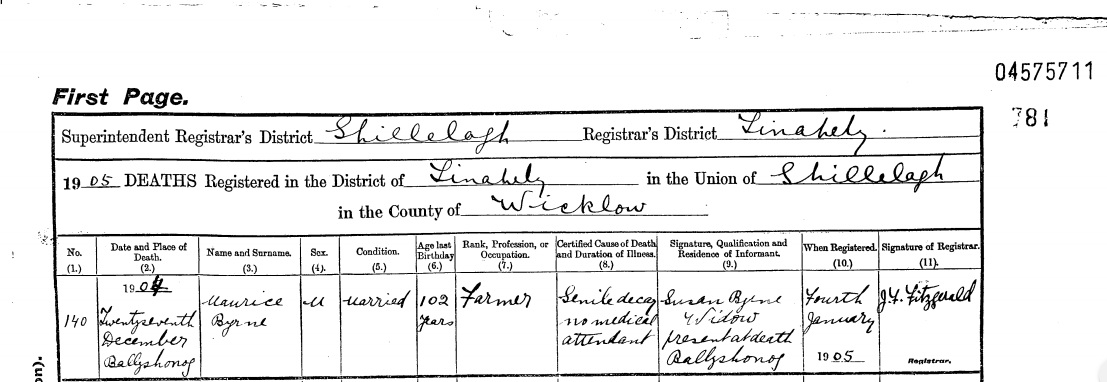 04575711
781
First Page.
Superintendent Registrar's District Shillelagh Registrar's District Tinahely.
1905 DEATHS Registered in the District of Tinahely in the Union of Shillelagh
in the County of Wicklow
No. (1.) Date and Place of Death. (2.) Name and Surname. (3.) Sex. (4). Condition. (5.) Age last Birthday (6.) Rank, Profession, or Occupation. (7.) Certified Cause of Death and Duration of Illness. (8.) Signature, Qualification and Residence of Informant. (9.) When Registered. (10.) Signature of Registrar. (11).
140
1904
Twentyseventh
December
Ballyshonog
Maurice
Byrne
M
Married
102
years
Farmer
Senile decay
no medical
attendant
Susan Byrne
Widow
present at death
Ballyshonog
Fourth
January
1905
J.F. Fitzgerald
Registrar.
on).